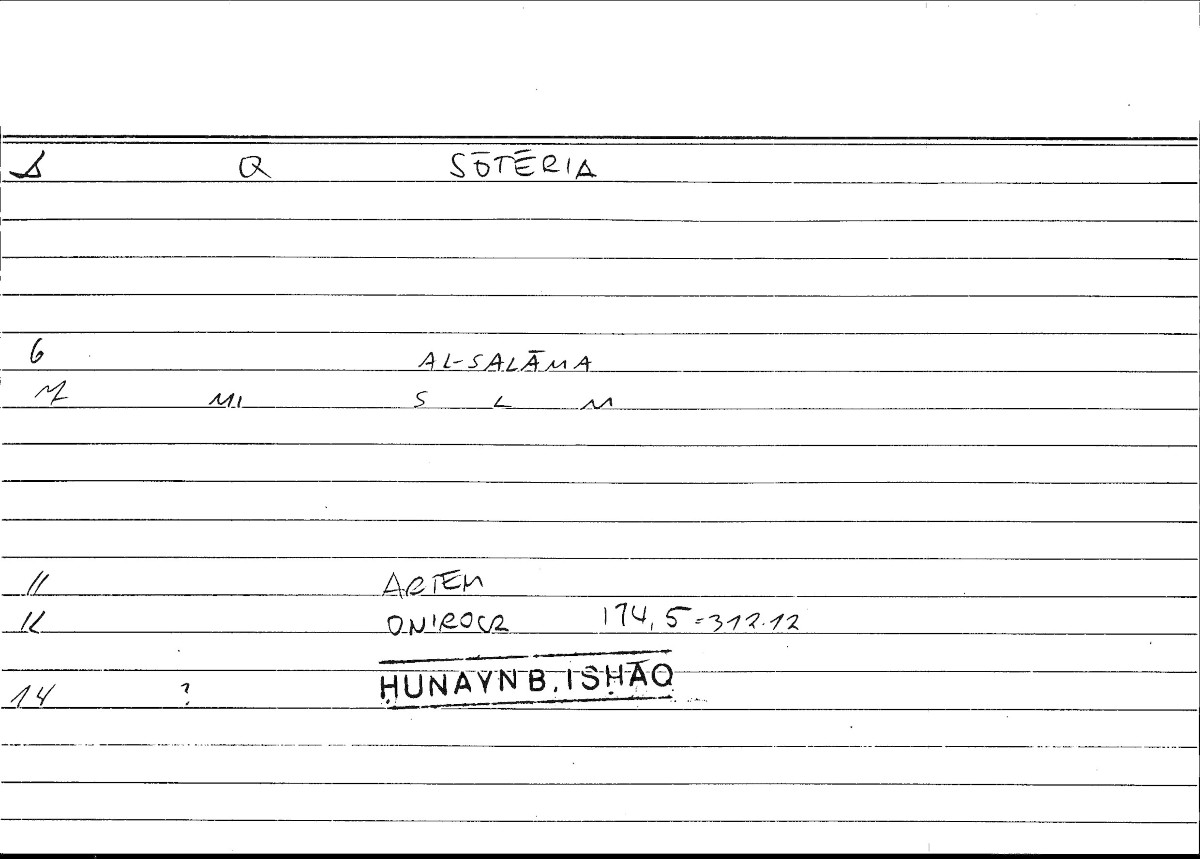 Q SŌTĒRIA
6 AL-SALĀMA
MI S L M
11 ARTEM
12 ONIROCR 174,5=312.12
14 ? ḤUNAYN B. ISḤĀQ